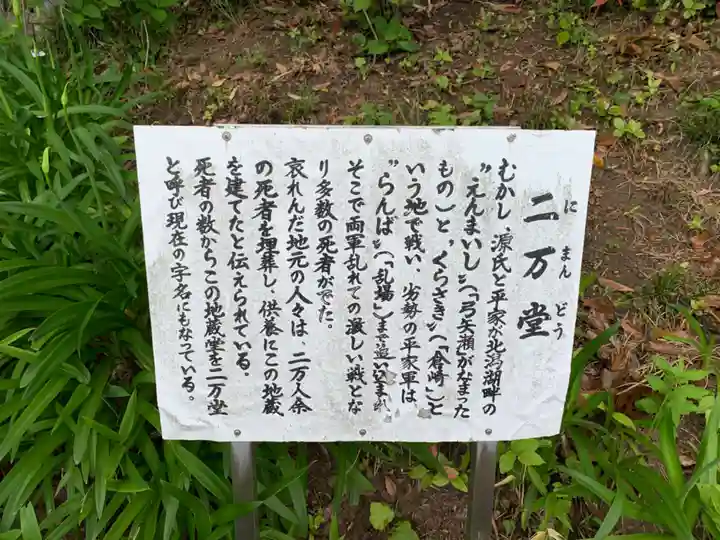 二万堂
にまんどう
むかし、源氏と平家が北潟湖畔の
〝えんまいし〟(「弓矢瀬」がなまった
もの)と、〝くらさき〟(「倉崎」)と
いう地で戦い、劣勢の平家軍は、
〝らんば〟(「乱場」)まで追い込まれ
そこで両軍乱れての激しい戦とな
り多数の死者がでた。
哀れんだ地元の人々は、二万人余
の死者を埋葬し、供養にこの地蔵
を建てたと伝えられている。
死者の数からこの地蔵堂を二万堂
と呼び現在の字名にもなっている。